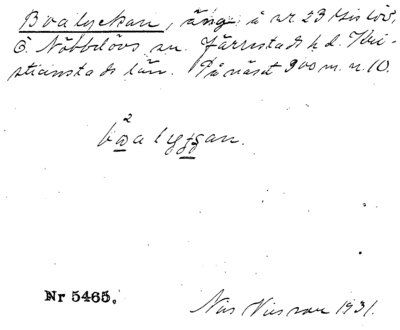 Boalyckan, äng å nr 23 Esislöv,
Ö Nöbbelövs sn. Järrestads hd. Kri-
stianstads län. På näset 900 m. n. 10.
2
boalyggan.
Nr 5465.
1931.